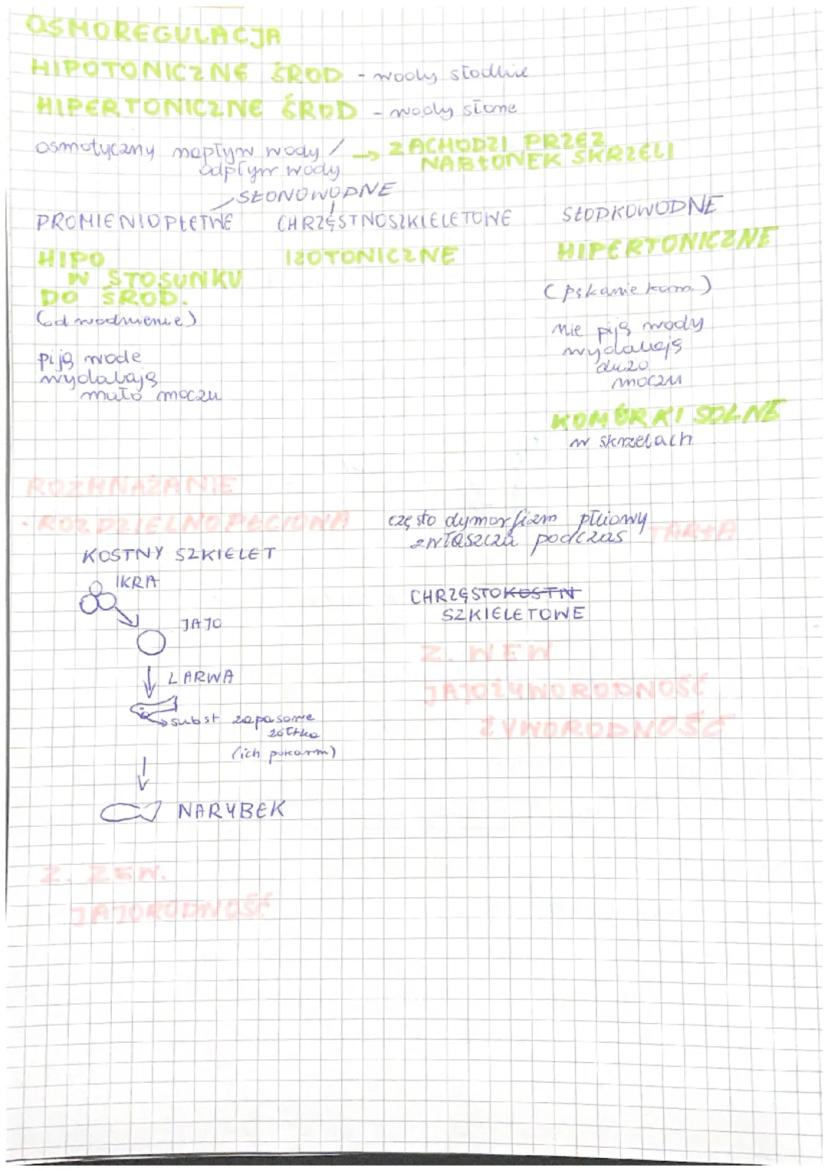 OSMOREGULACJA
HIPOTONICZNE ŚROD - wody słodkie
HIPERTONICZNE ŚROD - wody słone
osmotyczny napływ wody / → ZACHODZI PRZEZ
odpływ wody NABŁONEK SKRZELI
SŁONOWODNE
PROMIENIOPŁETWE CHRZĘSTNOSZKIELETOWE SŁODKOWODNE
HIPO IZOTONICZNE HIPERTONICZNE
W STOSUNKU
DO ŚROD.
(odwodnienie)
(pękanie kom.)
piją wode
wydalają
mało moczu
nie piją wody
wydalają
dużo
moczu
KOMÓRKI SOLNE
w skrzelach
ROZMNAŻANIE
• ROZDZIELNOPŁCIOWA
często dymorfizm płciowy
zwłaszcza podczas TARŁA
KOSTNY SZKIELET
IKRA
JAJO
LARWA
subst zapasowe
żółtko
(ich pokarm)
NARYBEK
Z. ZEW.
JAJORODNOŚĆ
CHRZĘSTOKOSTN
SZKIELETOWE
Z. WEW
JAJOŻYWORODNOŚĆ
ŻYWORODNOŚĆ